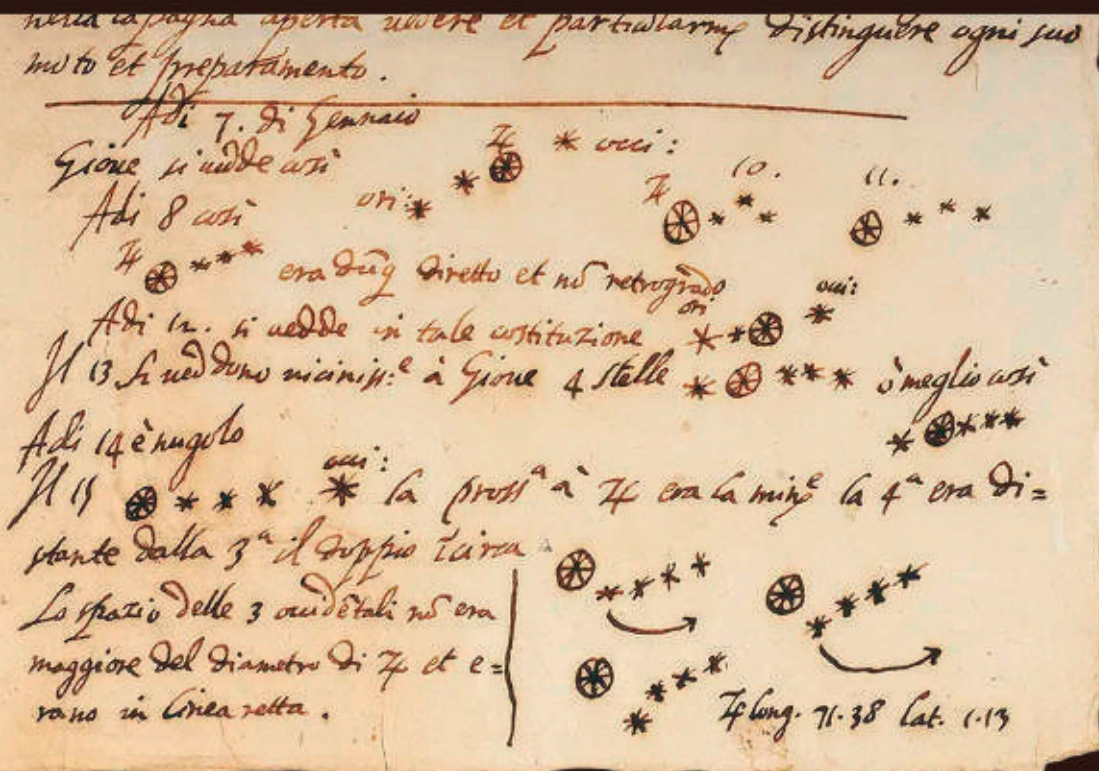 nella capagna aperta vedere et particolarmᵉ distinguere ogni suo
moto et preparamento.
Adi 7. di Gennaio
Gioue si uedde così
♃ * occi:
ori: *
Adi 8 così
♃ 10. 11.
♃
era dūq diretto et nō retrogrado
Adi 12. si uedde in tale costituzione
ori occi:
Il 13 si ueddono uiciniss.ᵉ à Gioue 4 stelle
ò meglio così
Adi 14 è nugolo
Il 15 occi: la prossᵃ à ♃ era la minᵉ la 4ᵃ era di=
stante dalla 3ᵃ il doppio īcirca
Lo spazio delle 3 occidētali nō era
maggiore del diametro di ♃ et e=
rano in linea retta.
♃ long. 71.38 lat. 1.13